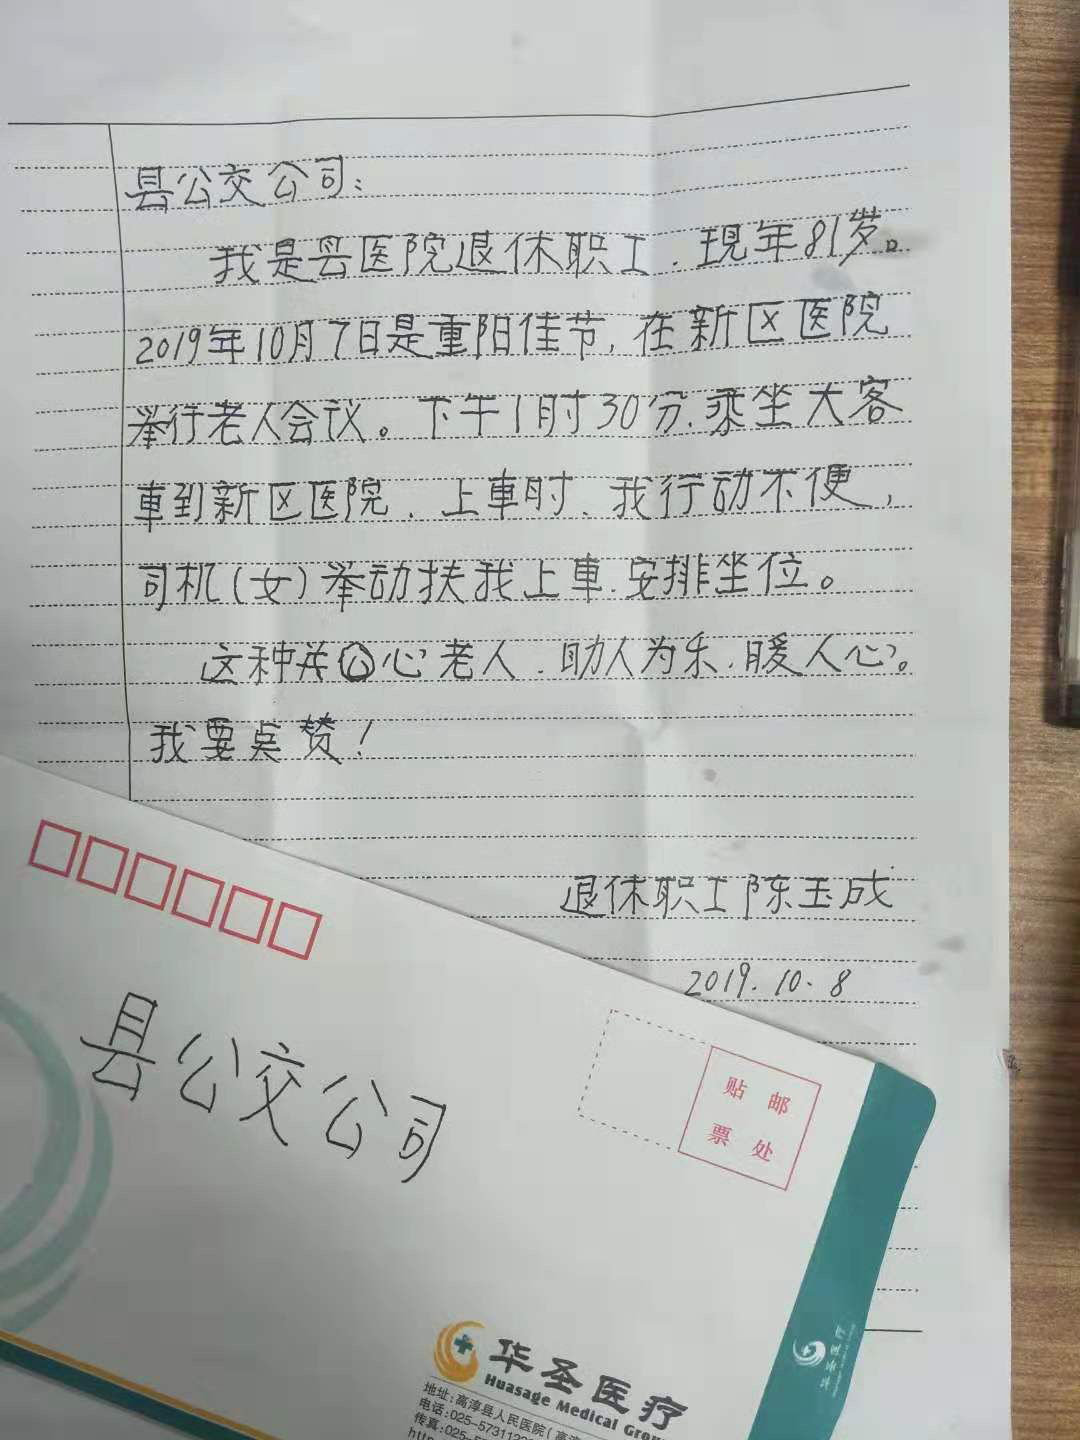 县公交公司:
我是县医院退休职工.现年81岁。
2019年10月7日是重阳佳节,在新区医院
举行老人会议。下午1时30分.乘坐大客
車到新区医院.上車时、我行动不便,
司机(女)举动扶我上車.安排坐位。
这种关心老人.助人为乐.暖人心。
我要点赞!
退休职工陈玉成
2019.10.8
县公交公司
贴 邮
票 处
华圣医疗
华圣医疗
Huasage Medical Grou
地址:高淳县人民医院(高淳
电话:025-5731122
传真:025-5
http